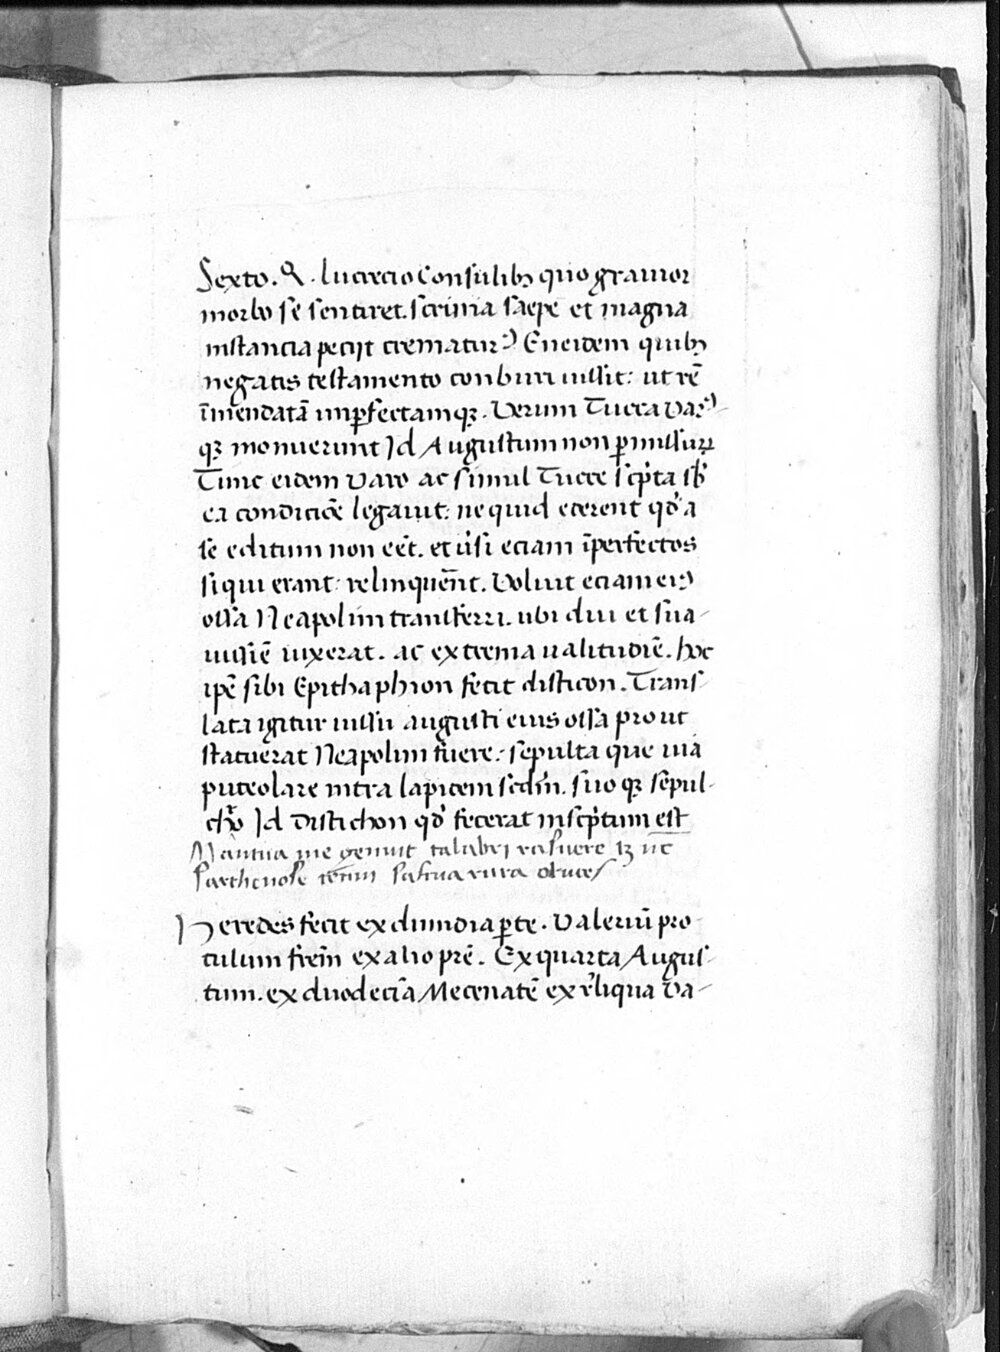 Sexto. Q. lucrecio Consulibꝫ quo grauior
morbo se sentiret. scrinia saepe et magna
instancia pecijt crematurꝰ Eneidem quibꝫ
negatis testamento conburi iussit: ut rē
īmendatā imꝑfectamqꝫ. Verum Tucca Varꝰ
qꝫ monuerunt Id Augustum non ꝑmissurū
Tunc eidem varo ac simul Tucce scͥpta sb̄
ea condicōe legauit: ne quid ederent qd̓ a
se editum non eēt. et ūsi eciam īperfectos
si qui erant: relinquēnt. Voluit eciam eiꝰ
ossa Neapolim transferri. ubi diu et sua-
uissīe uixerat. ac extrema ualitudīe. hoc
ipē sibi Epithaphion fecit disticon. Trans-
lata igitur iussu augusti eius ossa prout
statuerat Neapolim fuere. sepulta que uia
puteolare intra lapitem scdm̄. suo qꝫ sepul-
chro Id distichon qd̓ fecerat inscͥptum est
Mantua me genuit calabri rapuere tꝫ nc
Parthenope cecini pascua rura duces
Heredes fecit ex dimidia ꝑte. Valeriū pro-
culum frēm ex alio prē. Ex quarta Augus-
tum. ex duodecīa Mecenatē ex rͤliqua Va-